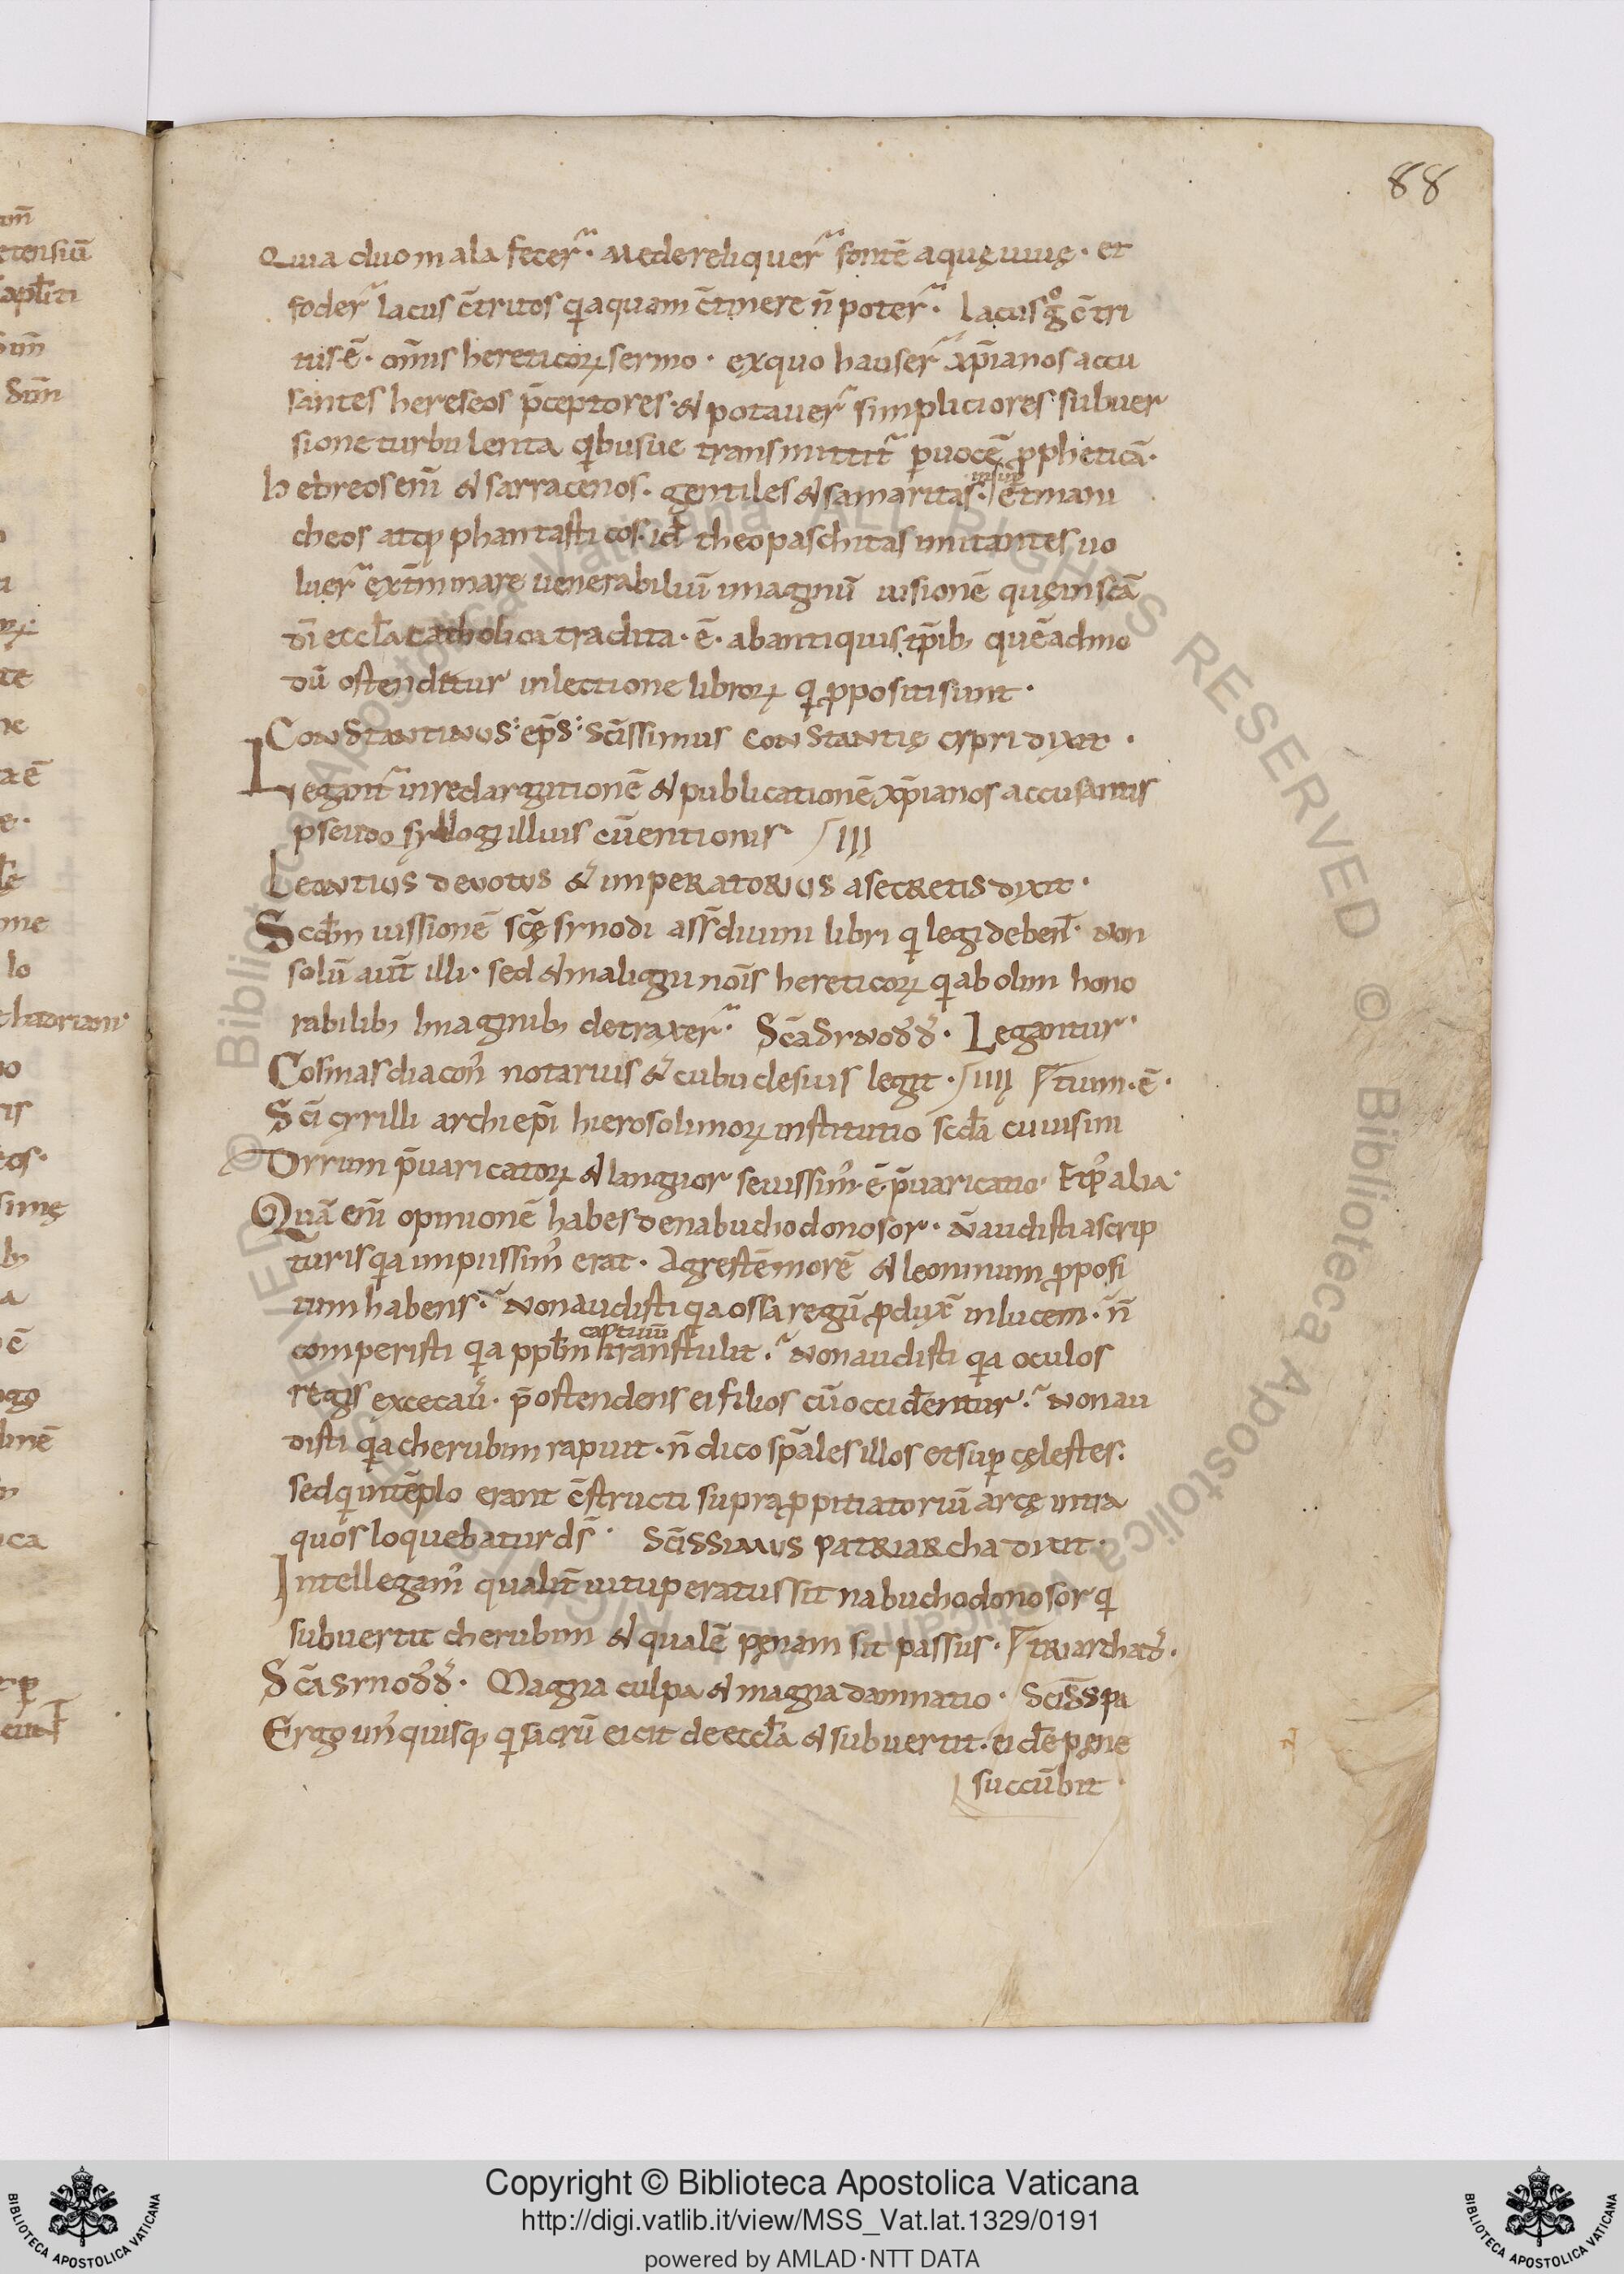 88
Quia duo mala fecer̄. Me dereliquer̄ fontē aquę uiuę. et
foder̄ lacus c̄tritos qi aquam c̄tinere n̄ poter̄. Lacus gͦ c̄tri
tus ē. om̄is hereticoꝝ sermo. ex quo hauser̄ xp̄ianos accu
santes hereseos p̄ceptores. & potauer̄ simpliciores subuer
sione turbulenta qibusue transmittit̄ ꝑ uocē ꝓpheticā.
hebreos eni̅ & sarracenos. gentiles & samaritas. et mani
cheos atqꝫ phantasticos. id̄ theopaschitas imitantes uo
luer̄ ext̄minare uenerabiliū imaginū uisionē quę in sc̄a
dī eccl̄a catholica tradita. ē. ab antiquis tp̄ibꝫ quēadmo
dū ostenditur in lectione libroꝝ qi ꝓpositi sunt.
Constantinus. ep̄s. sc̄issimus constantię cypri dixit.
Legant̄ in redargutionē & publicationē xp̄ianos accusantis
pseudo syllogi illius cūentionis III
Leontius deuotus & imperatorius a secretis dixit.
Scd̄m iussionē sc̄ę synodi ass̄ duum libri qi legi deben̄t. non
solū aut̄ illi. sed & maligni nōis hereticoꝝ qi ab olim hono
rabilibꝫ Imaginibꝫ detraxer̄. Sc̄a synod̄ d̄. Legantur.
Cosmas diacon̄ notarius & cubuclesius legit. IIII tium. ē.
Sc̄i cyrilli archiep̄i hierosolimoꝝ institutio scd̄a cuius ini
Dirrum p̄uaricatoꝝ & languor seuissim̄. ē p̄uaricatio. Et p̄ alia.
Quā eni̅ opinionē habes de nabuchodonosor. n̄ audisti a scrip
turis qia impiissim̄ erat. Agrestē morē & leoninum ꝓposi
tum habens. Non audisti qia ossa regū ꝓduxē in lucem. n̄
captiuū
comperisti qia ppl̄m transtulit. Non audisti qia oculos
regis excecaū. p̄ostendens ei filios cū occid̄entur. Non au
disti qia cherubim rapuit. n̄ dico sp̄ales illos et suꝑ cęlestes.
sed qi in tēplo erant c̄structi supra ꝓpitiatoriū arcę intra
quos loquebatur ds̄. Sc̄issimus patriarcha dixit.
Intellegam̄ qualit̄ uituperatus sit nabuchodonosor qi
subuertit cherubim & qualē pęnam sit passus. triarcha d̄.
Sc̄a synod̄ d̄. Magna culpa & magna damnatio. Sc̄iss pa
Ergo un̄quisqꝫ qi sacrū eicit de eccl̄a & subuertit. eid̄e pęne
succūbit
Copyright © Biblioteca Apostolica Vaticana
http://digi.vatlib.it/view/MSS_Vat.lat.1329/0191
powered by AMLAD·NTT DATA
BIBLIOTECA APOSTOLICA VATICANA
BIBLIOTECA APOSTOLICA VATICANA